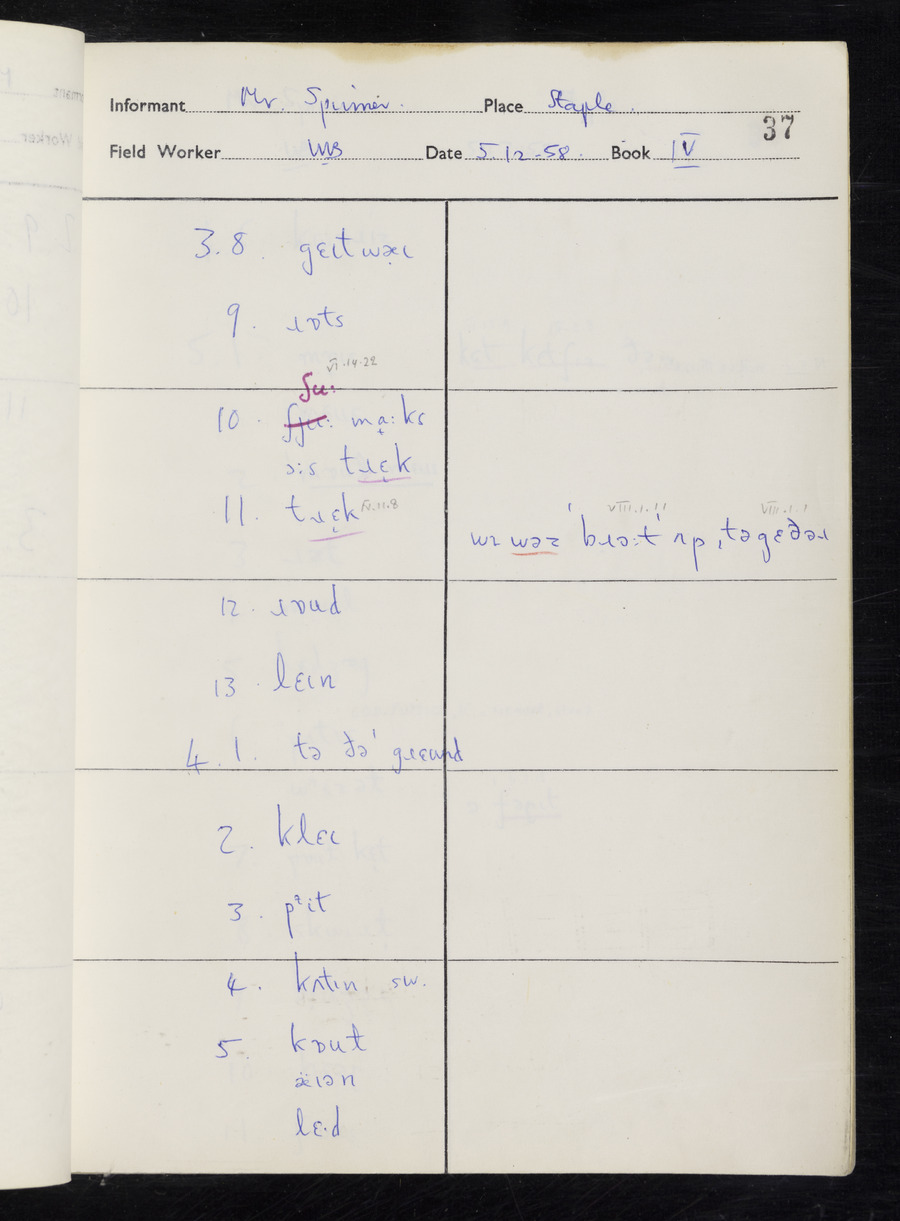 Informant Mr. Spinner. Place Staple.
37
Field Worker Place Date 5.12.58. Book IV
3.8. gɛɪtwæɪ
9. ɹɒts
VI.14.22
ʃuː
10. ʃjuː mạːks
ɔːs tɹɛ̣k
11. tɹɛ̣k IV.11.8
VIII.1.11 VIII.1.1
wɪ wəz ˈbɹɔːt ˈʌp ˌtəgɛðəɹ
12. ɹɒud
13. lɛɪn
4.1. tə ðəˈ gɹɛund
2. klɛɪ
3. pᵊit
4. kʌtɪn sw.
5. kɒut
æ̈ɪən
lɛ·d